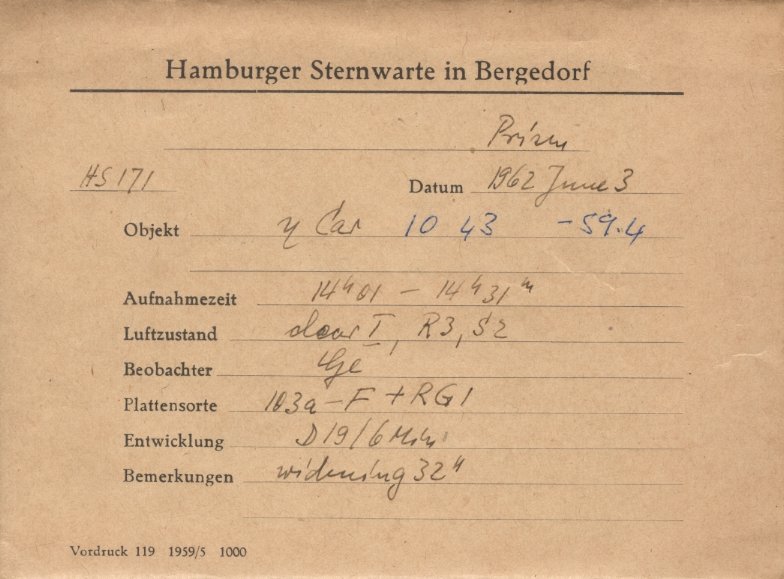 Hamburger Sternwarte in Bergedorf
Prism
HS 171 Datum 1962 June 3
Objekt η Car 10 43 -59.4
Aufnahmezeit 14ʰ01 – 14ʰ31ᵐ
Luftzustand clear I, R3, S2
Beobachter Ge
Plattensorte 103a-F + RG1
Entwicklung D19/6 Min
Bemerkungen widening 32"
Vordruck 119 1959/5 1000